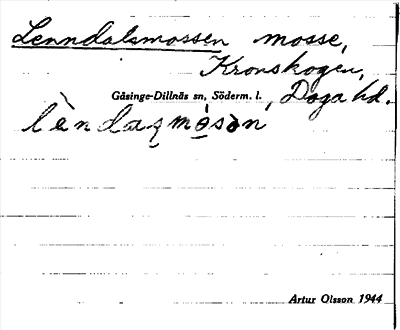 Lenndalsmossen mosse,
Kronskogen,
Gåsinge-Dillnäs sn, Söderm. l., Daga hd.
lèndaʂmòsɔn
Artur Olsson 1944